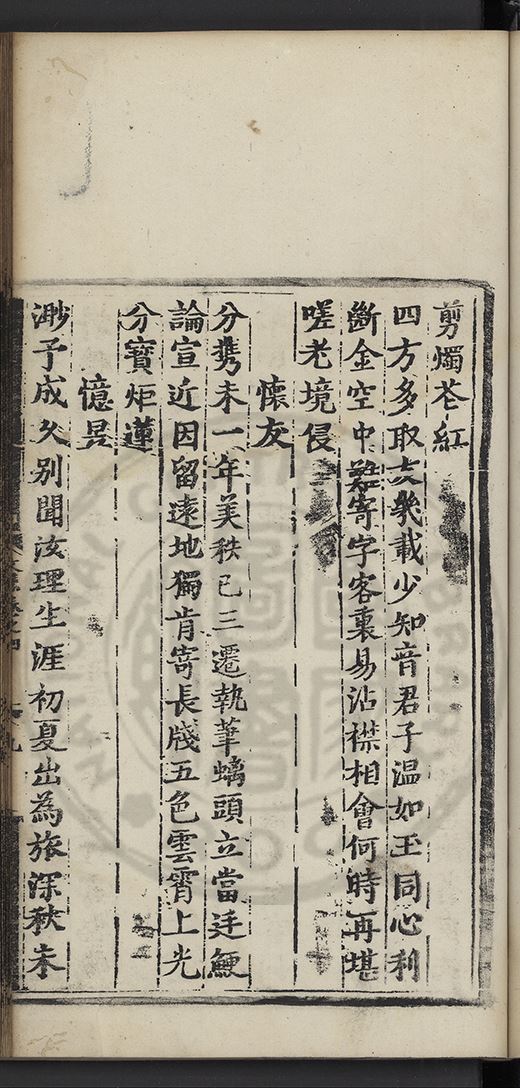 剪燭苍紅
四方多取友幾載少知音君子温如玉同心利
斷金空中難寄字客裏易沾襟相會何時再堪
嗟老境侵
懷友
分携未一年美秩已三遷執筆螭頭立當廷鯁
論宣近因留遠地獨肯寄長牋五色雲霄上光
分寳炬蓮
憶昱
渺予成久别聞汝理生涯初夏出為旅深秋未